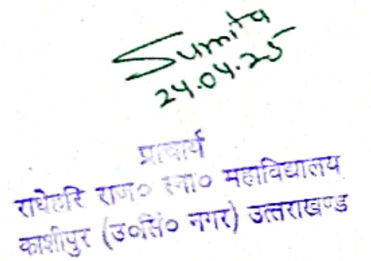 Sumita
24.04.25
प्राचार्य
राधेहरि राज० स्ना० महाविद्यालय
काशीपुर (उ०सिं० नगर) उत्तराखण्ड